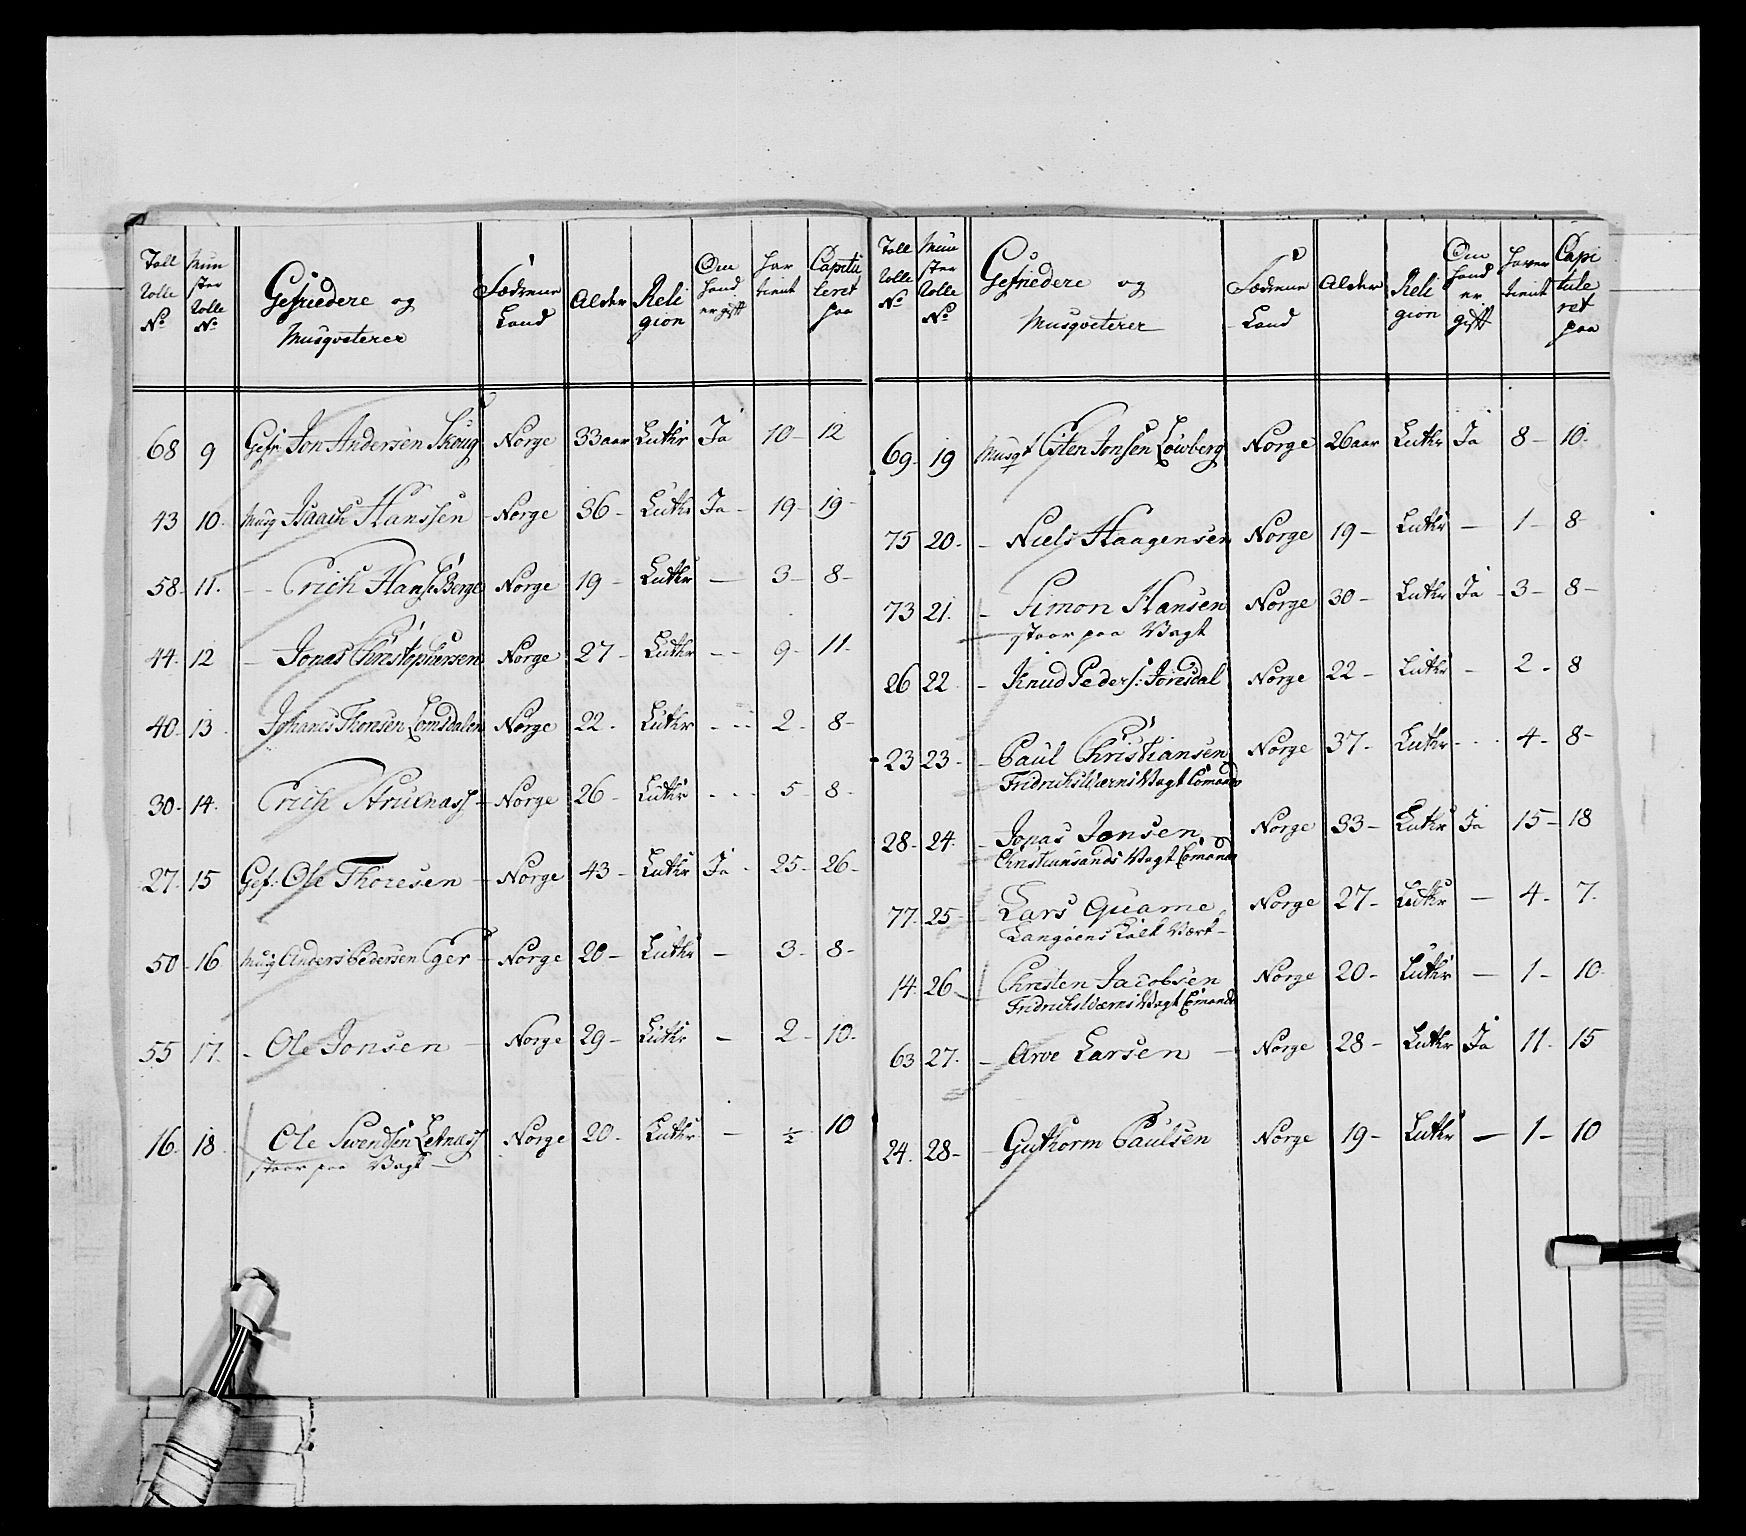 Tall Rolle No | Mun ster Rolle No | Gefriedere og Musqveterer | Fædrene Land | Alder | Reli gion | Om hand er gift | har tient | Capitu leret paa
68 | 9 | Gefr. Jon Andersen Skoug | Norge | 33 aar | Luthr | Ja | 10 - | 12
43 | 10 | Musq Isaach Hanssen | Norge | 36 - | Luthr | Ja - | 19 - | 19 -
58 | 11. | - - Erich Hans: Berge | Norge | 19 - | Luthr | - | 3 - | 8 -
44 | 12 | - Jonas Christophersen | Norge | 27 - | Luthr | - - | 9 - | 11.
40 | 13 | Johanes Thorsen Lomsdalen | Norge | 22 - | Luthr | - - | 2 - | 8 -
30 - | 14. | Erich | Norge | 26 - | Luthr | - - - | 5 - | 8 -
27. | 15 | Gef: Ole Thoresen - | Norge | 43 - | Luthr | Ja - | 25 - | 26 -
50 - | 16 | Musq Anders Pedersen Eger | Norge | 20 - | Luthr | - | 3 - | 8 -
55 | 17. | - Ole Jonsen - | Norge | 29 - | Luthr | - | 2 - | 10 -
16. | 18. | Ole Svendsen | Norge | 20 - | Luthr | - | ½ | 10
staar paa Vagt -
Tall Rolle No | Mun ster Rolle No | Gefriedere og Musqveterer | Fædrene Land | Alder | Reli gion | Om hand er gift | haver tient | Capi tule ret paa
69 - | 19 | Musqt Esten Jonsen Løwberg | Norge | 26 aar | Luthr | Ja | 8 - | 10 -
75 | 20 - | - Niels Haagensen | Norge | 19 - | Luthr | - | 1 - | 8 -
73 | 21. | - Simon Hansen | Norge | 30 - | Luthr | Ja | 3 - | 8 -
staar paa Vagt
26 | 22 | - Knud Peders: | Norge | 22 - | Luthr | - | 2 - | 8
23 | 23 - | - Paul Christiansen | Norge | 37 - | Luthr | - - - | 4 - | 8 -
Fridrichsværns Vagt Comando
28 - | 24. | - Jonas Jensen | Norge | 33 - | Luthr | Ja | 15 - | 18
Christiansands Vagt Comando
77. | 25 | - Lars Quame | Norge | 27 - | Luthr | - | 4 - | 7.
Langøens Kalk Værk -
14 | 26 | Christen Jacobsen | Norge | 20 - | Luthr | - | 1 - | 10 -
Fridrichsværns Vagt Comando
63 | 27. | - Arve Larsen - | Norge | 28 - | Luthr | Ja | 11 - | 15
24. | 28 - | - Guthorm Paulsen | Norge | 19 - | Luthr | - | 1 - | 10